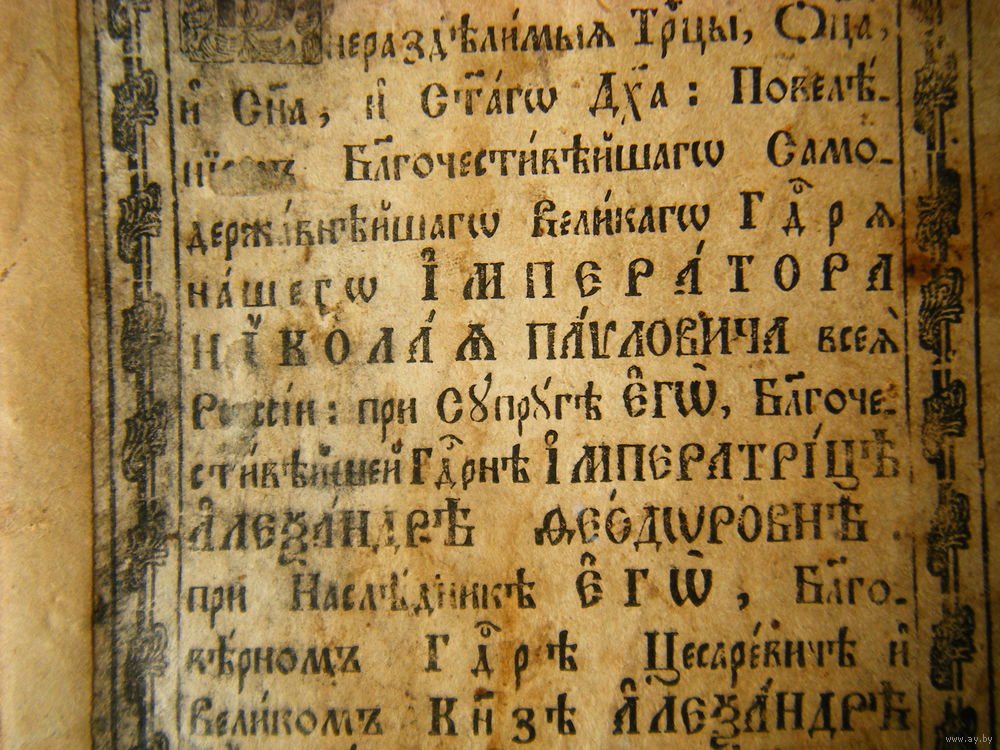 нераздѣ́лимыѧ Трⷪ҇цы, Ѻ҆ц҃а̀,
и҆ Сн҃а, и҆ Ст҃а́гѡ Дх҃а : Повелѣ́-
нїемъ Бл҃гочести́вѣйшагѡ Само-
держа́внѣйшагѡ Вели́кагѡ Гдⷭ҇рѧ
на́шегѡ І҆МПЕРА́ТОРА
НЇКОЛА́Ѧ ПА́ѴЛОВИЧА всеѧ̀
Рѡссі́и : при Сꙋпрꙋ́гѣ Є҆ГѠ̀, Бл҃гоче-
сти́вѣйшей Гдⷭ҇рнѣ І҆МПЕРАТРІ́ЦѢ
А҆ЛЕѮА́НДРѢ ѲЕО́ДѠРОВНѢ .
при Наслѣ́дникѣ Є҆ГѠ̀, Бл҃го-
вѣ́рномъ Гдⷭ҇рѣ Цесаре́вичѣ и҆
Вели́комъ Кн҃зѣ А҆ЛЕѮА́НДРѢ
www.ay.by